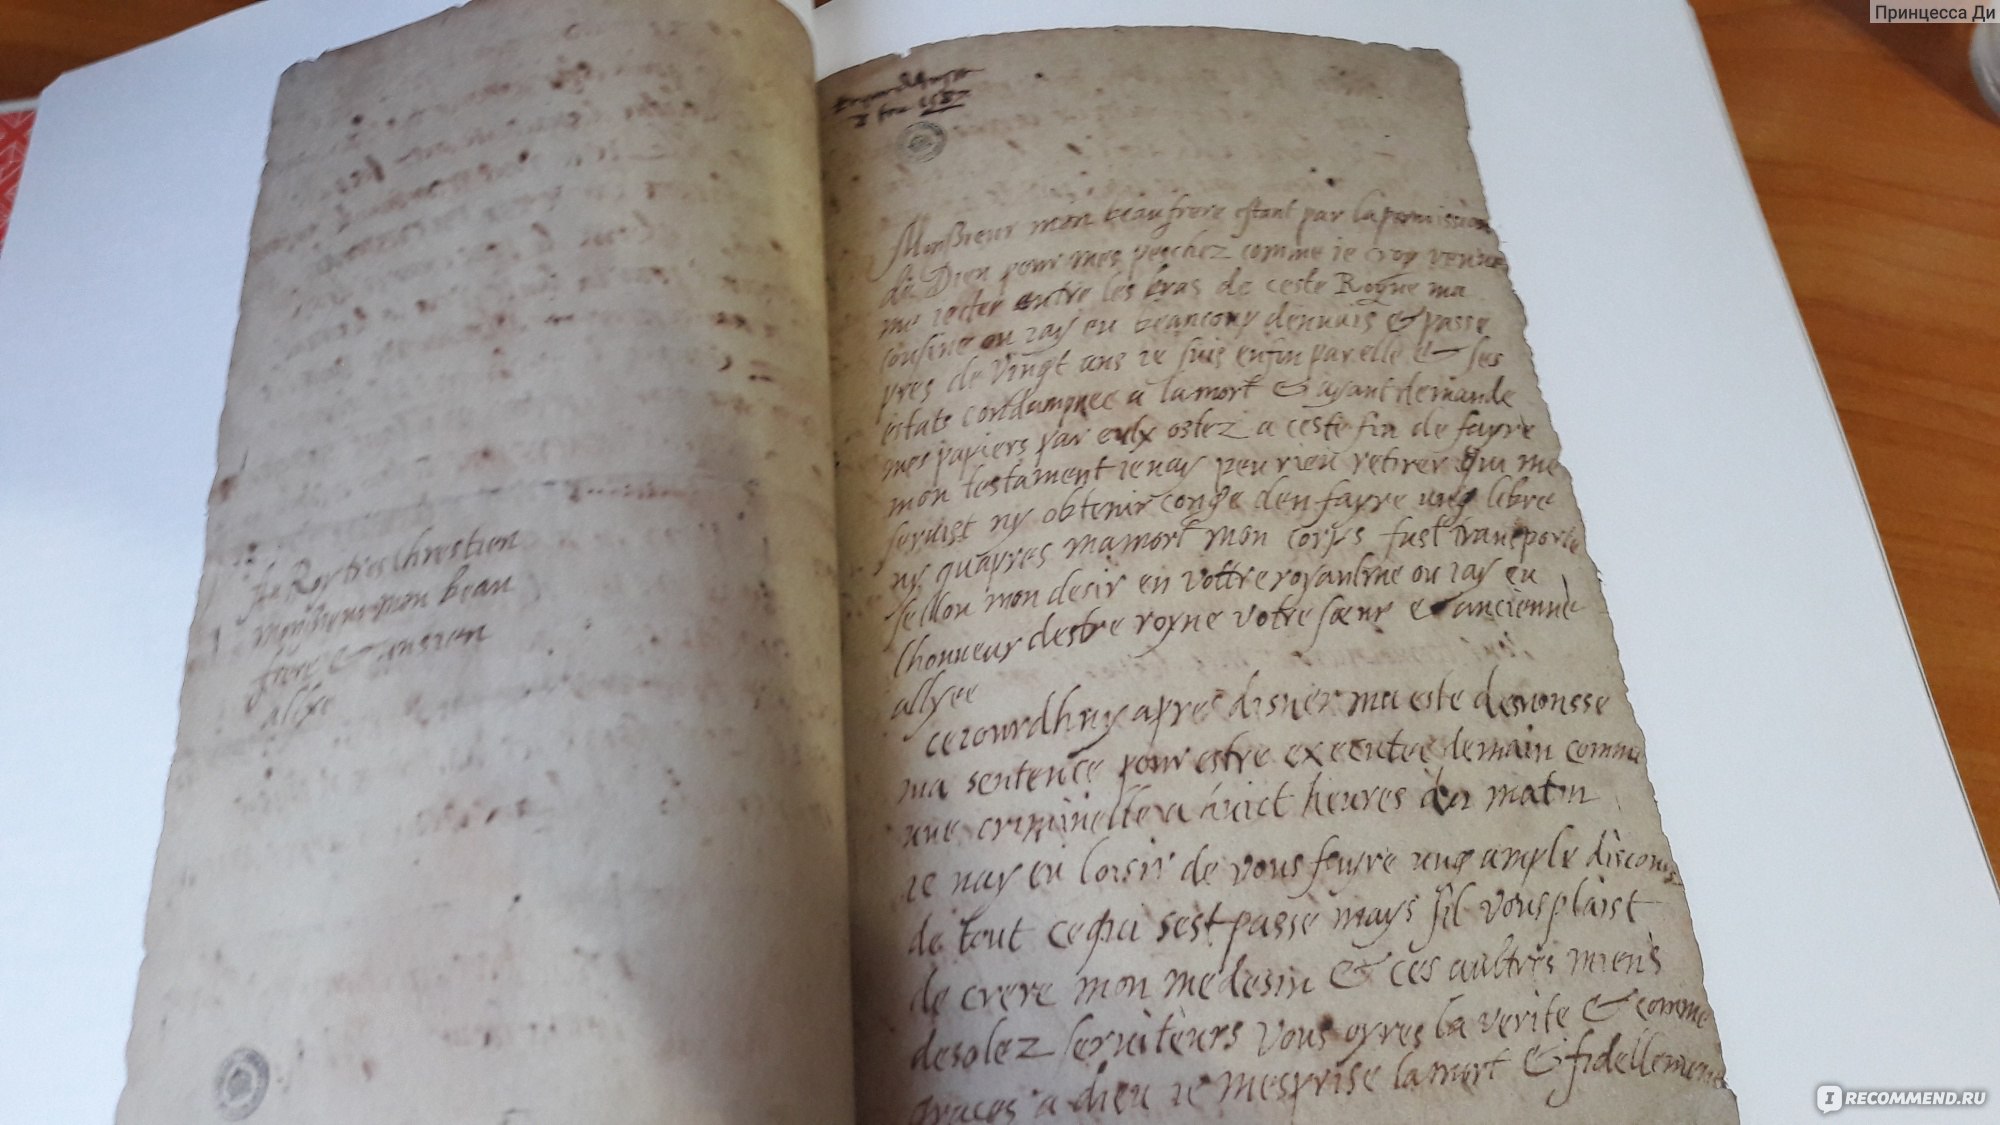 Принцесса Ди
8 feu 1587
Le Roy tres chrestien
monssieur mon beau
frere & ansien
allye
Monssieur mon beaufrere estant par la permission
de Dieu pour mes peschez comme ie croy venue
me iecter entre les bras de ceste Royne ma
cousine ou iay eu beaucoup dennuis & passe
pres de vingt ans ie suis enfin par elle & ses
estats condampnee a la mort & ayant demande
mes papiers par eulx ostez a ceste fin de fayre
mon testament ie nay peu rien retirer qui me
seruist ny obtenir conge den fayre ung libre
ny quapres ma mort mon corps fust transporte
sellon mon desir en vottre royaulme ou iay eu
lhonneur destre royne votre sœur & ancienne
allyee
ceiourdhuy apres disner ma este desnonsse
ma sentence pour estre executee demain comme
une criminelle a huict heures du matin
ie nay eu loisir de vous fayre ung ample discours
de tout ce qui sest passe mays sil vous plaist
de crere mon medesin & ces aultres miens
desolez seruiteurs vous oyres la verite & comme
graces a dieu ie mesprise la mort & fidellement
IRECOMMEND.RU